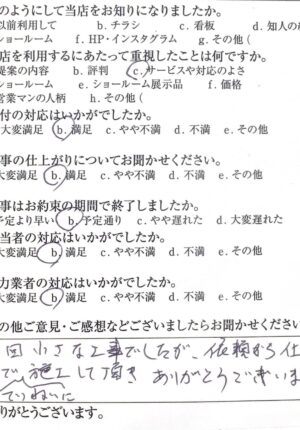 のようにして当店をお知りになりましたか。
以前利用して b. チラシ c. 看板 d. 知人の紹
ショールーム f. HP・インスタグラム g. その他 (
店を利用するにあたって重視したことは何ですか。
提案の内容 b. 評判 c. サービスや対応のよさ
ショールーム e. ショールーム展示品 f. 価格
営業マンの人柄 h. その他 (
付の対応はいかがでしたか。
大変満足 b. 満足 c. やや不満 d. 不満 e. その他
事の仕上がりについてお聞かせください。
大変満足 b. 満足 c. やや不満 d. 不満 e. その他
事はお約束の期間で終了しましたか。
予定より早い b. 予定通り c. やや遅れた d. 大変遅れた
当者の対応はいかがでしたか。
大変満足 b. 満足 c. やや不満 d. 不満 e. その他
力業者の対応はいかがでしたか。
大変満足 b. 満足 c. やや不満 d. 不満 e. その他
の他ご意見・ご感想などございましたらお聞かせください
回 小さな工事でしたが、依頼から仕
で 施工して頂き ありがとうございま
ていねいに
りがとうございます。